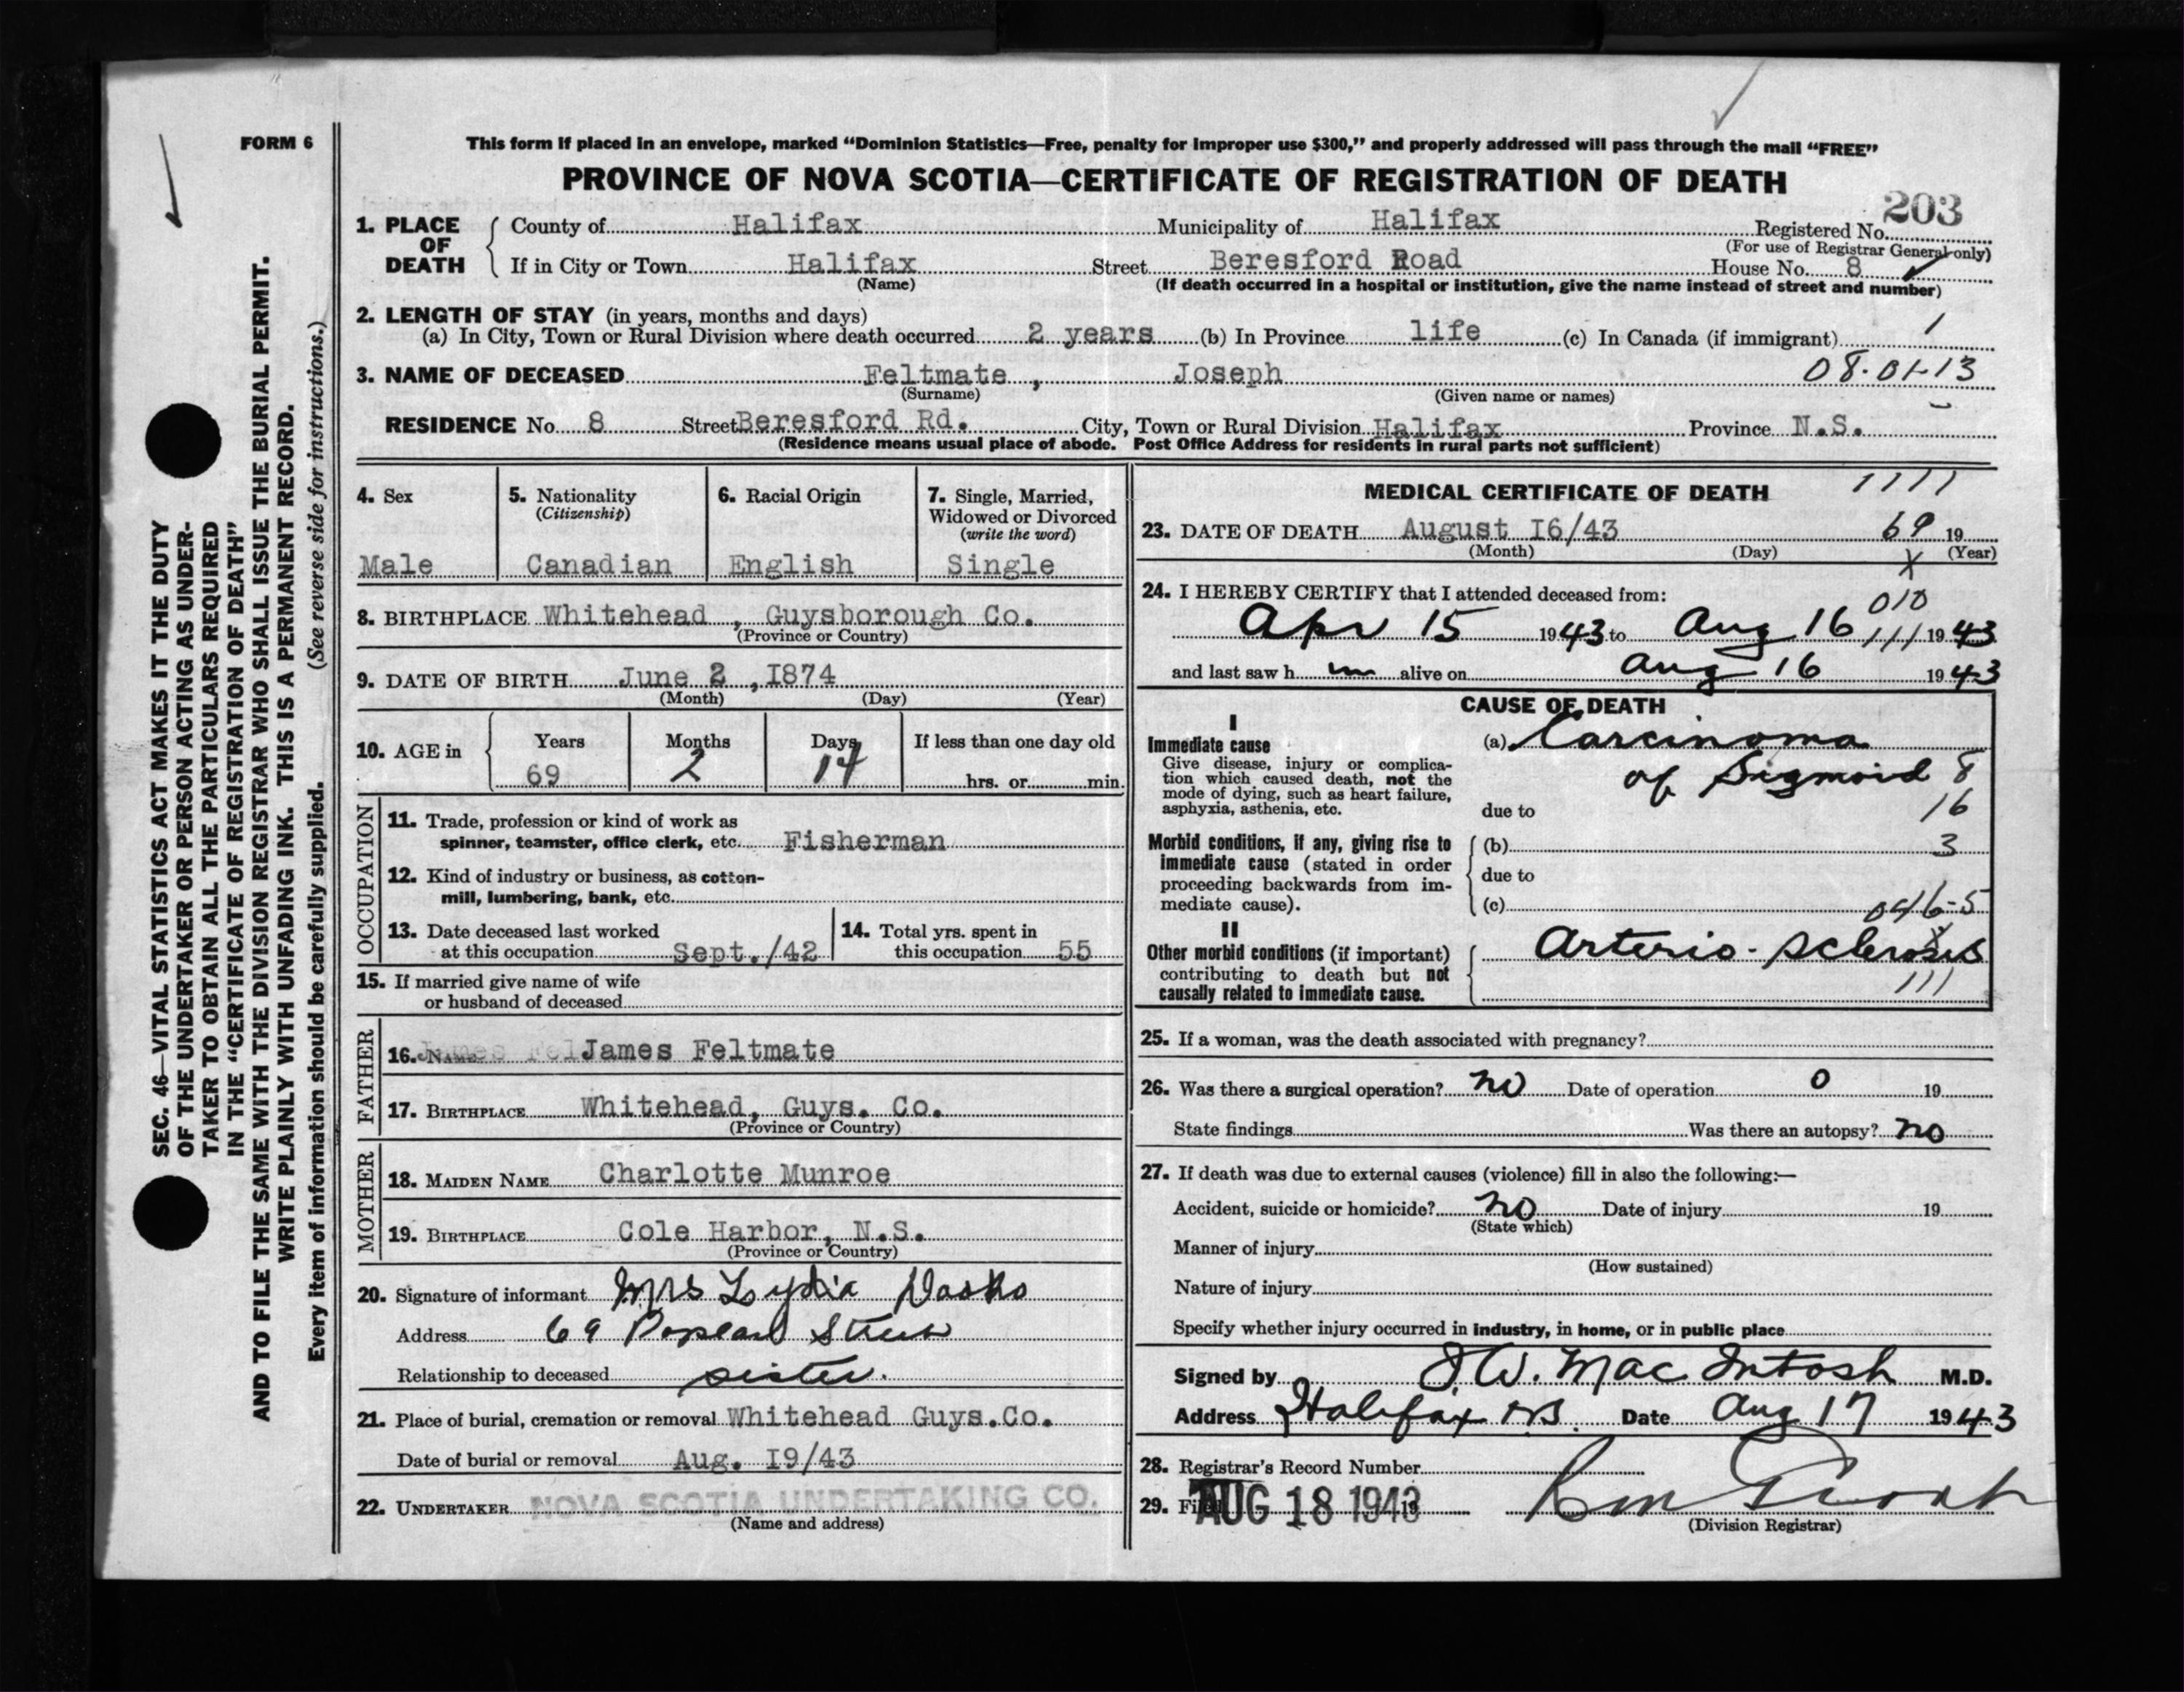 FORM 6
This form if placed in an envelope, marked “Dominion Statistics—Free, penalty for improper use $300,” and properly addressed will pass through the mail “FREE”
PROVINCE OF NOVA SCOTIA—CERTIFICATE OF REGISTRATION OF DEATH
203
1. PLACE OF DEATH { County of Halifax Municipality of Halifax Registered No.
(For use of Registrar General only)
If in City or Town Halifax Street Beresford Road House No. 8
(Name) (If death occurred in a hospital or institution, give the name instead of street and number)
2. LENGTH OF STAY (in years, months and days)
(a) In City, Town or Rural Division where death occurred 2 years (b) In Province life (c) In Canada (if immigrant) 1
3. NAME OF DECEASED Feltmate , Joseph 08.01-13
(Surname) (Given name or names)
RESIDENCE No. 8 Street Beresford Rd. City, Town or Rural Division Halifax Province N.S.
(Residence means usual place of abode. Post Office Address for residents in rural parts not sufficient)
4. Sex
Male
5. Nationality
(Citizenship)
Canadian
6. Racial Origin
English
7. Single, Married,
Widowed or Divorced
(write the word)
Single
8. BIRTHPLACE Whitehead , Guysborough Co.
(Province or Country)
9. DATE OF BIRTH June 2 ,1874
(Month) (Day) (Year)
10. AGE in { Years Months Days If less than one day old
69 2 14 hrs. or min.
OCCUPATION
11. Trade, profession or kind of work as
spinner, teamster, office clerk, etc. Fisherman
12. Kind of industry or business, as cotton-
mill, lumbering, bank, etc.
13. Date deceased last worked
at this occupation Sept./42
14. Total yrs. spent in
this occupation 55
15. If married give name of wife
or husband of deceased
FATHER
16. NAME James Feltmate
17. BIRTHPLACE Whitehead, Guys. Co.
(Province or Country)
MOTHER
18. MAIDEN NAME Charlotte Munroe
19. BIRTHPLACE Cole Harbor, N.S.
(Province or Country)
20. Signature of informant Mrs Lydia
Address 69
Relationship to deceased sister.
21. Place of burial, cremation or removal Whitehead Guys.Co.
Date of burial or removal Aug. I9/43
22. UNDERTAKER NOVA SCOTIA UNDERTAKING CO.
(Name and address)
MEDICAL CERTIFICATE OF DEATH 1111
23. DATE OF DEATH August I6/43 69 19
(Month) (Day) (Year)
X
24. I HEREBY CERTIFY that I attended deceased from: 010
Apr 15 1943 to Aug 16 111 1943
and last saw h m alive on Aug 16 1943
CAUSE OF DEATH
I
Immediate cause
Give disease, injury or complica-
tion which caused death, not the
mode of dying, such as heart failure,
asphyxia, asthenia, etc.
(a) Carcinoma
of Sigmoid 8
due to 16
Morbid conditions, if any, giving rise to
immediate cause (stated in order
proceeding backwards from im-
mediate cause).
(b) 3
due to
(c) 046-5
II
Other morbid conditions (if important)
contributing to death but not
causally related to immediate cause.
Arterio-sclerosis
111
25. If a woman, was the death associated with pregnancy?
26. Was there a surgical operation? no Date of operation 0 19
State findings Was there an autopsy? no
27. If death was due to external causes (violence) fill in also the following:—
Accident, suicide or homicide? no Date of injury 19
(State which)
Manner of injury
(How sustained)
Nature of injury
Specify whether injury occurred in industry, in home, or in public place
Signed by J.W. MacIntosh M.D.
Address Halifax N.S. Date Aug 17 1943
28. Registrar's Record Number
29. Filed AUG 18 1943
(Division Registrar)
SEC. 46—VITAL STATISTICS ACT MAKES IT THE DUTY
OF THE UNDERTAKER OR PERSON ACTING AS UNDER-
TAKER TO OBTAIN ALL THE PARTICULARS REQUIRED
IN THE “CERTIFICATE OF REGISTRATION OF DEATH”
AND TO FILE THE SAME WITH THE DIVISION REGISTRAR WHO SHALL ISSUE THE BURIAL PERMIT.
WRITE PLAINLY WITH UNFADING INK. THIS IS A PERMANENT RECORD.
Every item of information should be carefully supplied. (See reverse side for instructions.)